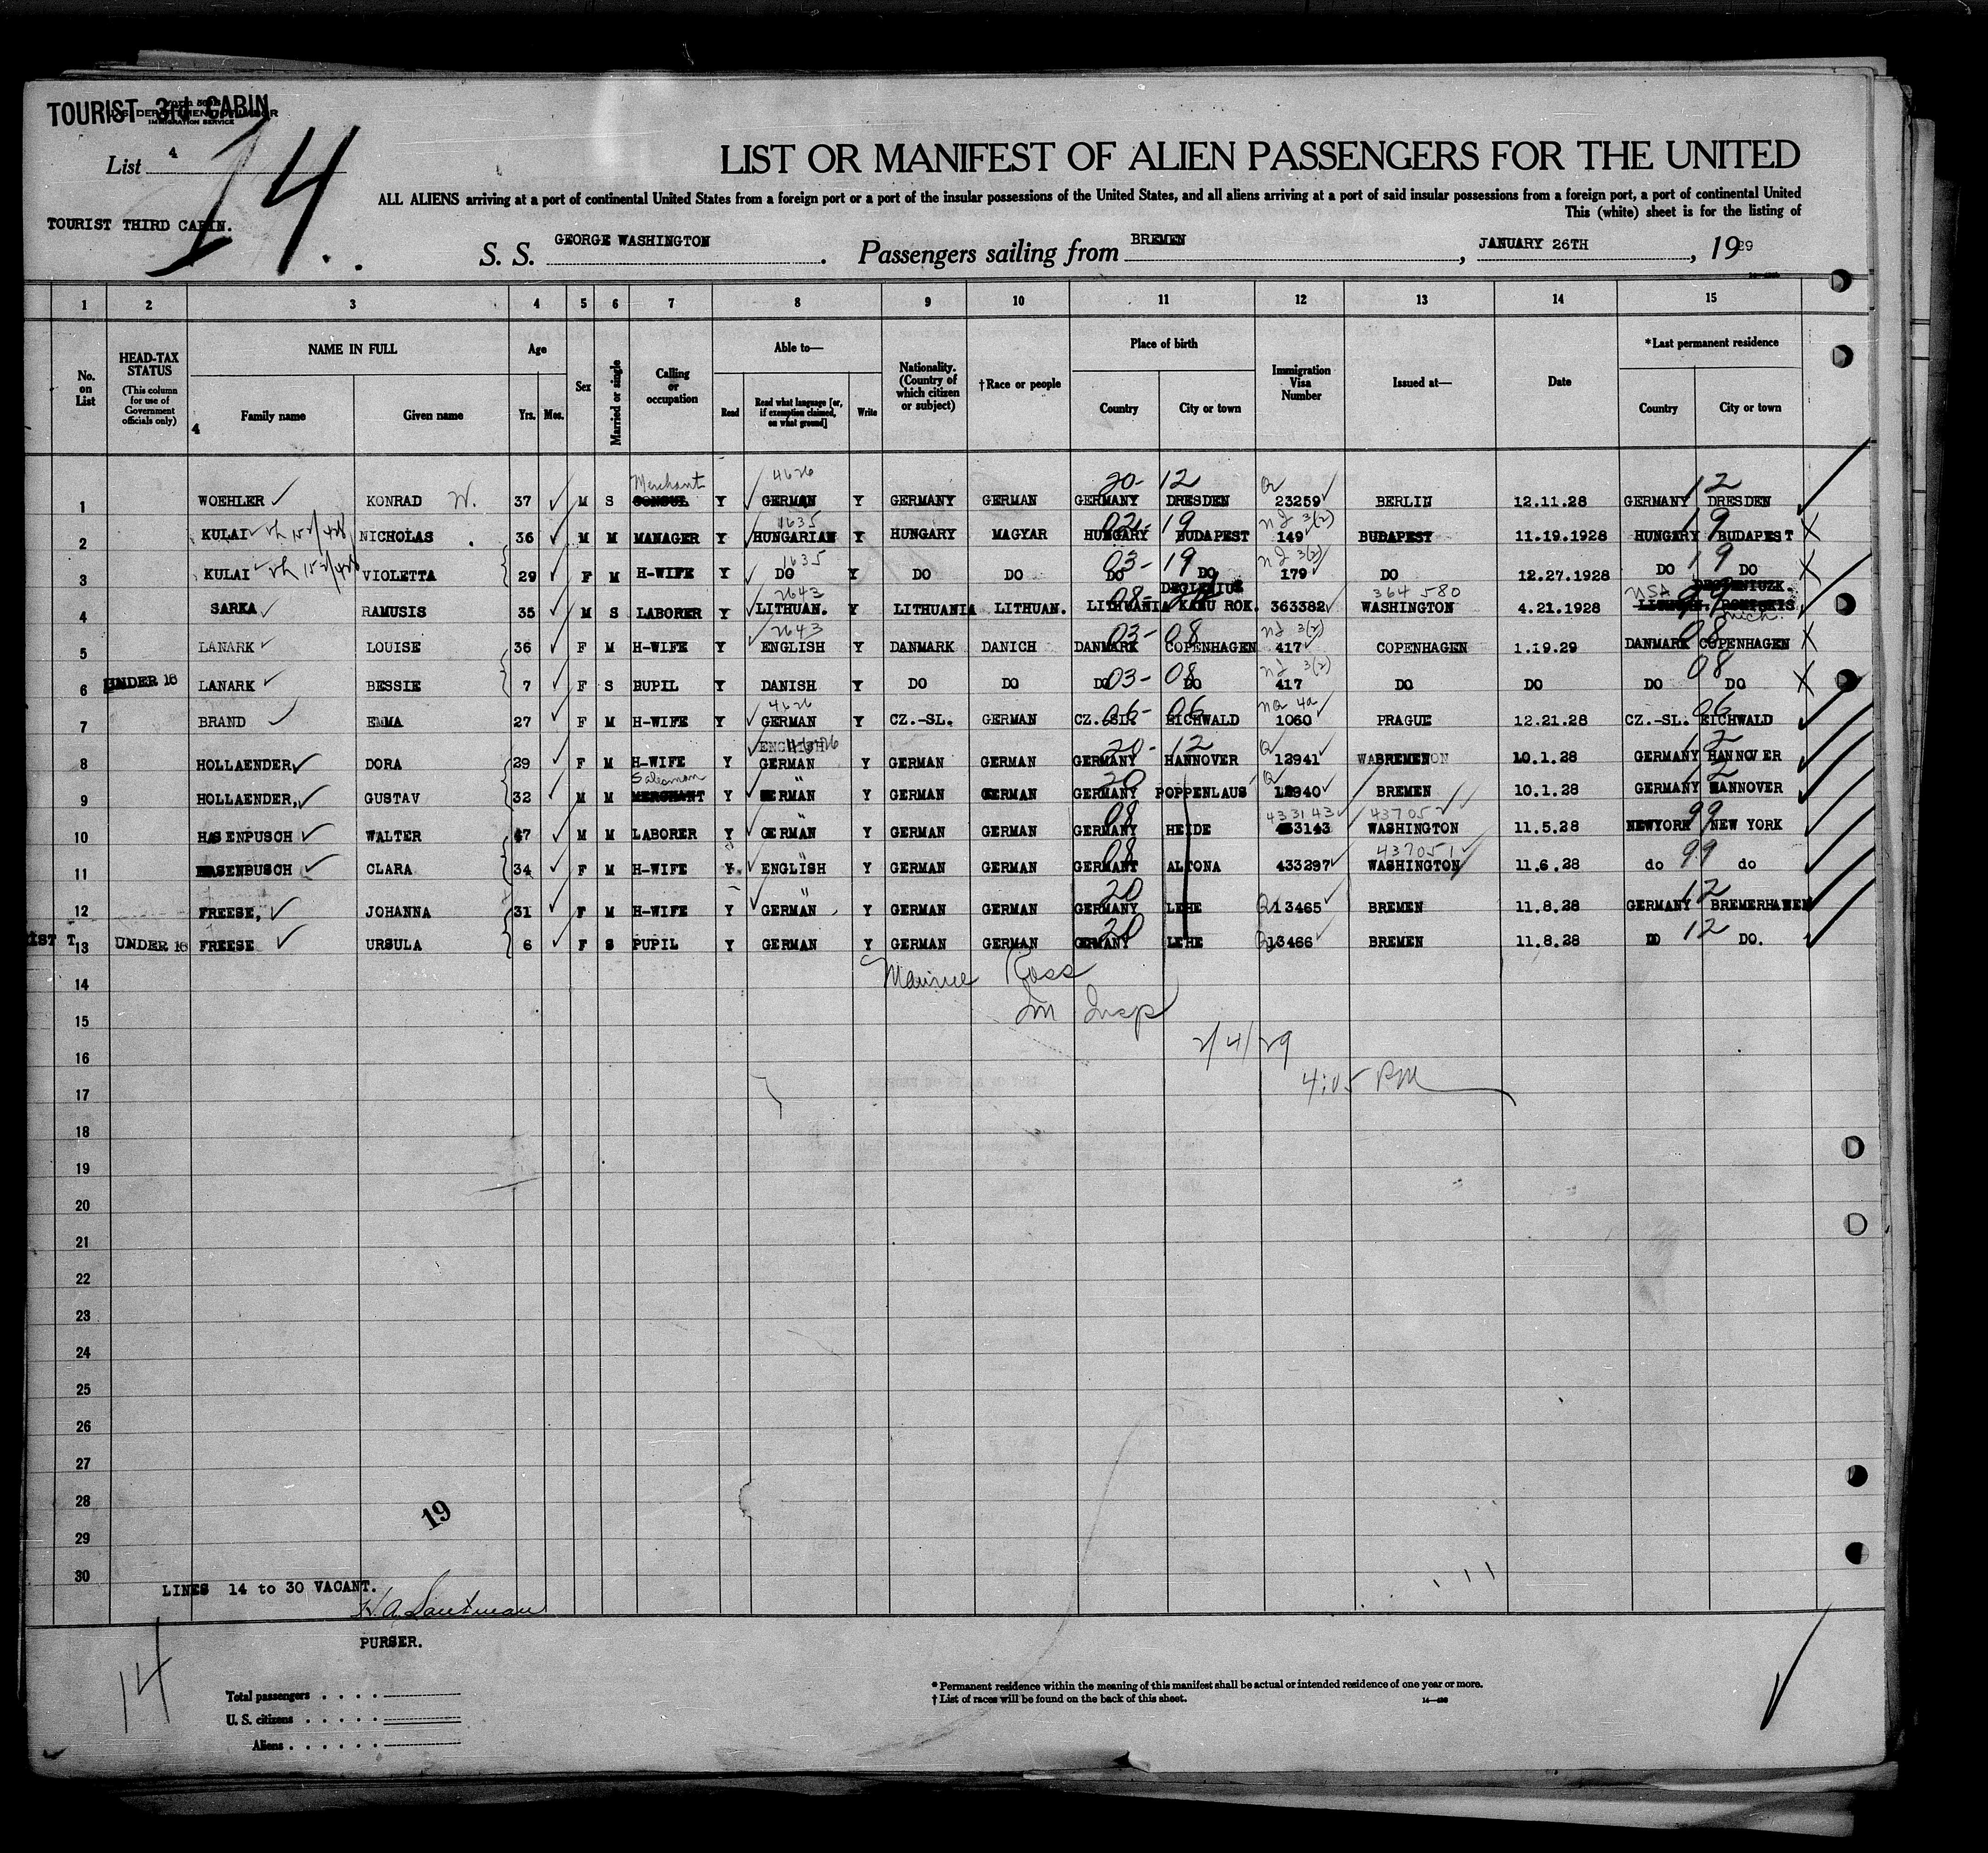 TOURIST 3rd CABIN
U.S. DEPARTMENT OF LABOR
IMMIGRATION SERVICE
List 4
14
LIST OR MANIFEST OF ALIEN PASSENGERS FOR THE UNITED
ALL ALIENS arriving at a port of continental United States from a foreign port or a port of the insular possessions of the United States, and all aliens arriving at a port of said insular possessions from a foreign port, a port of continental United
This (white) sheet is for the listing of
TOURIST THIRD CABIN.
S. S. GEORGE WASHINGTON. Passengers sailing from BREMEN, JANUARY 26TH, 1929
1 2 3 4 5 6 7 8 9 10 11 12 13 14 15
No. on List
HEAD-TAX STATUS
(This column for use of Government officials only)
NAME IN FULL
4 Family name
Given name
Age
Yrs. Mos.
Sex
Married or single
Calling or occupation
Able to—
Read
Read what language [or, if exemption claimed, on what ground]
Write
Nationality. (Country of which citizen or subject)
†Race or people
Place of birth
Country
City or town
Immigration Visa Number
Issued at—
Date
*Last permanent residence
Country
City or town
Merchant 4626 20- 12 12
1 WOEHLER KONRAD W. 37 M S CONSUL Y GERMAN Y GERMANY GERMAN GERMANY DRESDEN 23259 BERLIN 12.11.28 GERMANY DRESDEN
1635 02- 19 3(2) 19
2 KULAI NICHOLAS 36 M M MANAGER Y HUNGARIAN Y HUNGARY MAGYAR HUNGARY BUDAPEST 149 BUDAPEST 11-19.1928 HUNGARY BUDAPEST X
1635 03- 19 3(2) 19
3 KULAI VIOLETTA 29 F M H-WIFE Y DO Y DO DO DO DO 179 DO 12.27.1928 DO DO X
2643 08- 364 580 99
4 SARKA RAMUSIS 35 M S LABORER Y LITHUAN. Y LITHUANIA LITHUAN. LITHUANIA KANU ROK. 363382 WASHINGTON 4.21.1928 Mich.
2643 03- 08 3(2) 08
5 LANARK LOUISE 36 F M H-WIFE Y ENGLISH Y DANMARK DANICH DANMARK COPENHAGEN 417 COPENHAGEN 1.19.29 DANMARK COPENHAGEN X
03- 08 3(2) 08
6 UNDER 16 LANARK BESSIE 7 F S PUPIL Y DANISH Y DO DO DO DO 417 DO DO DO DO X
4626 06- 06 4a 06
7 BRAND EMMA 27 F M H-WIFE Y GERMAN Y CZ.-SL. GERMAN CZ.-SL. EICHWALD 1060 PRAGUE 12.21.28 CZ.-SL. EICHWALD
ENGLISH 4626 20- 12 Q 12
8 HOLLAENDER DORA 29 F M H-WIFE Y GERMAN Y GERMAN GERMAN GERMANY HANNOVER 12941 BREMEN 10.1.28 GERMANY HANNOVER
Salesman " 20 Q 12
9 HOLLAENDER, GUSTAV 32 M M MERCHANT Y GERMAN Y GERMAN GERMAN GERMANY POPPENLAUS 12940 BREMEN 10.1.28 GERMANY HANNOVER
" 08 433143 43705 99
10 HASENPUSCH WALTER 47 M M LABORER Y GERMAN Y GERMAN GERMAN GERMANY HEIDE 433143 WASHINGTON 11.5.28 NEWYORK NEW YORK
" 08 437051 99
11 HASENPUSCH CLARA 34 F M H-WIFE Y ENGLISH Y GERMAN GERMAN GERMANY ALTONA 433297 WASHINGTON 11.6.28 do do
" 20 12
12 FREESE, JOHANNA 31 F M H-WIFE Y GERMAN Y GERMAN GERMAN GERMANY LEHE Q 13465 BREMEN 11.8.28 GERMANY BREMERHAVEN
20 12
13 UNDER 16 FREESE URSULA 6 F S PUPIL Y GERMAN Y GERMAN GERMAN GERMANY LEHE Q 13466 BREMEN 11.8.28 DO DO.
14 Maurice Ross
15 Im Insp
16 2/4/29
17 4:05 PM
18
19
20
21
22
23
24
25
26
27
28
29 19
30
LINES 14 to 30 VACANT.
PURSER.
14
Total passengers . . . .
U. S. citizens . . . . .
Aliens . . . . . .
* Permanent residence within the meaning of this manifest shall be actual or intended residence of one year or more.
† List of races will be found on the back of this sheet. 14—430